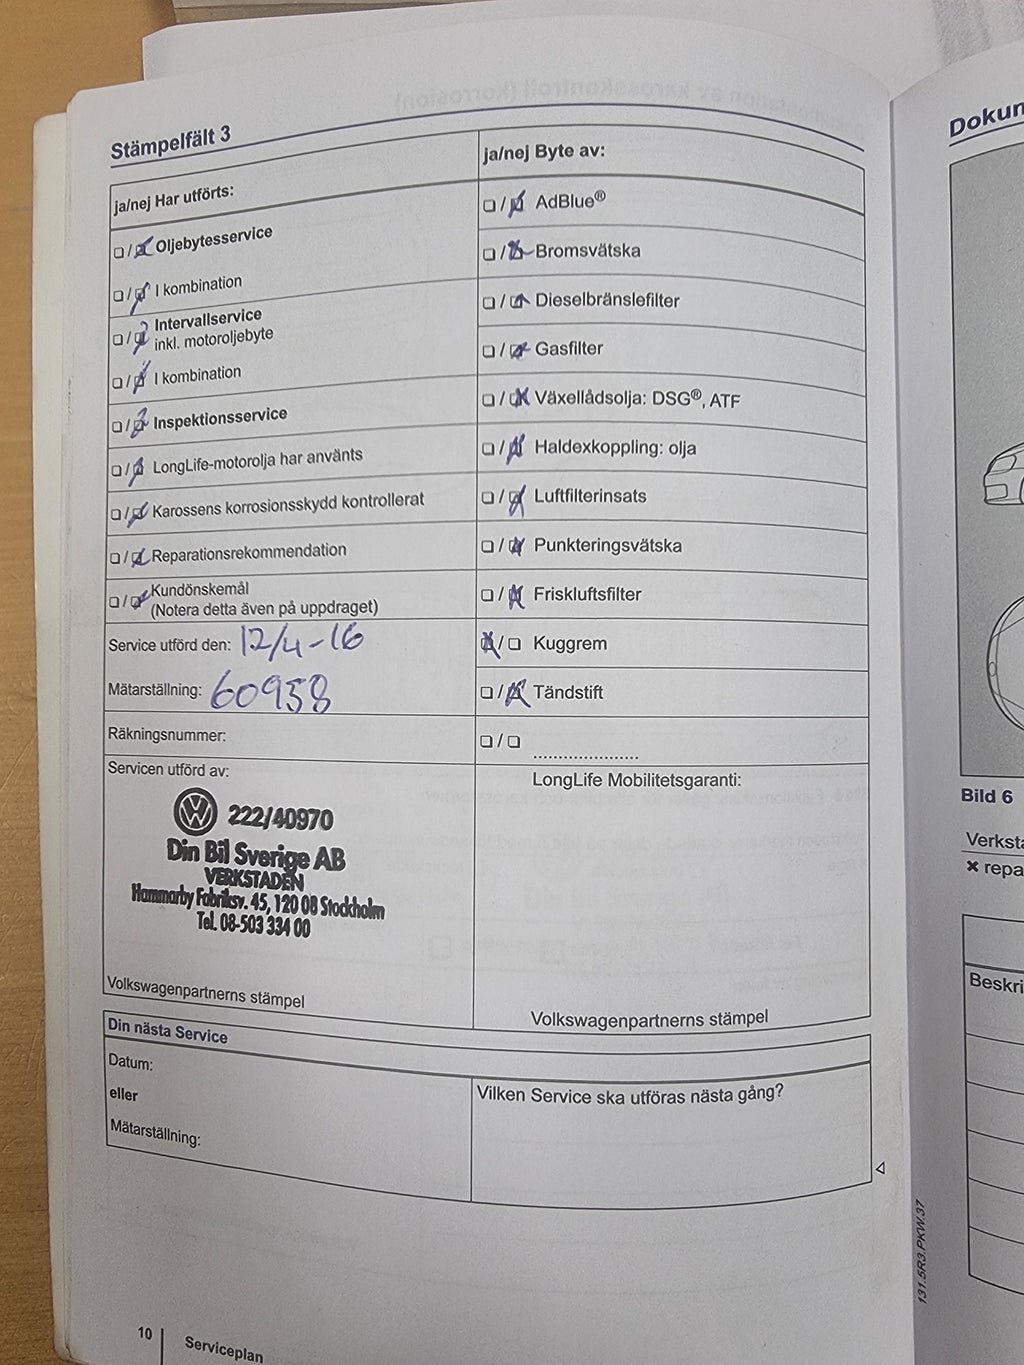 Stämpelfält 3
ja/nej Har utförts:
Oljebytesservice
I kombination
Intervallservice
inkl. motoroljebyte
I kombination
Inspektionsservice
LongLife-motorolja har använts
Karossens korrosionsskydd kontrollerat
Reparationsrekommendation
Kundönskemål
(Notera detta även på uppdraget)
Service utförd den: 12/4-16
Mätarställning: 60958
Räkningsnummer:
Servicen utförd av:
222/40970
Din Bil Sverige AB
VERKSTADEN
Hammarby Fabriksv. 45, 120 08 Stockholm
Tel. 08-503 334 00
Volkswagenpartnerns stämpel
ja/nej Byte av:
AdBlue®
Bromsvätska
Dieselbränslefilter
Gasfilter
Växellådsolja: DSG®, ATF
Haldexkoppling: olja
Luftfilterinsats
Punkteringsvätska
Friskluftsfilter
Kuggrem
Tändstift
LongLife Mobilitetsgaranti:
Volkswagenpartnerns stämpel
Din nästa Service
Datum:
eller
Mätarställning:
Vilken Service ska utföras nästa gång?
10
Serviceplan
131.5R3.PKW.37
Bild 6